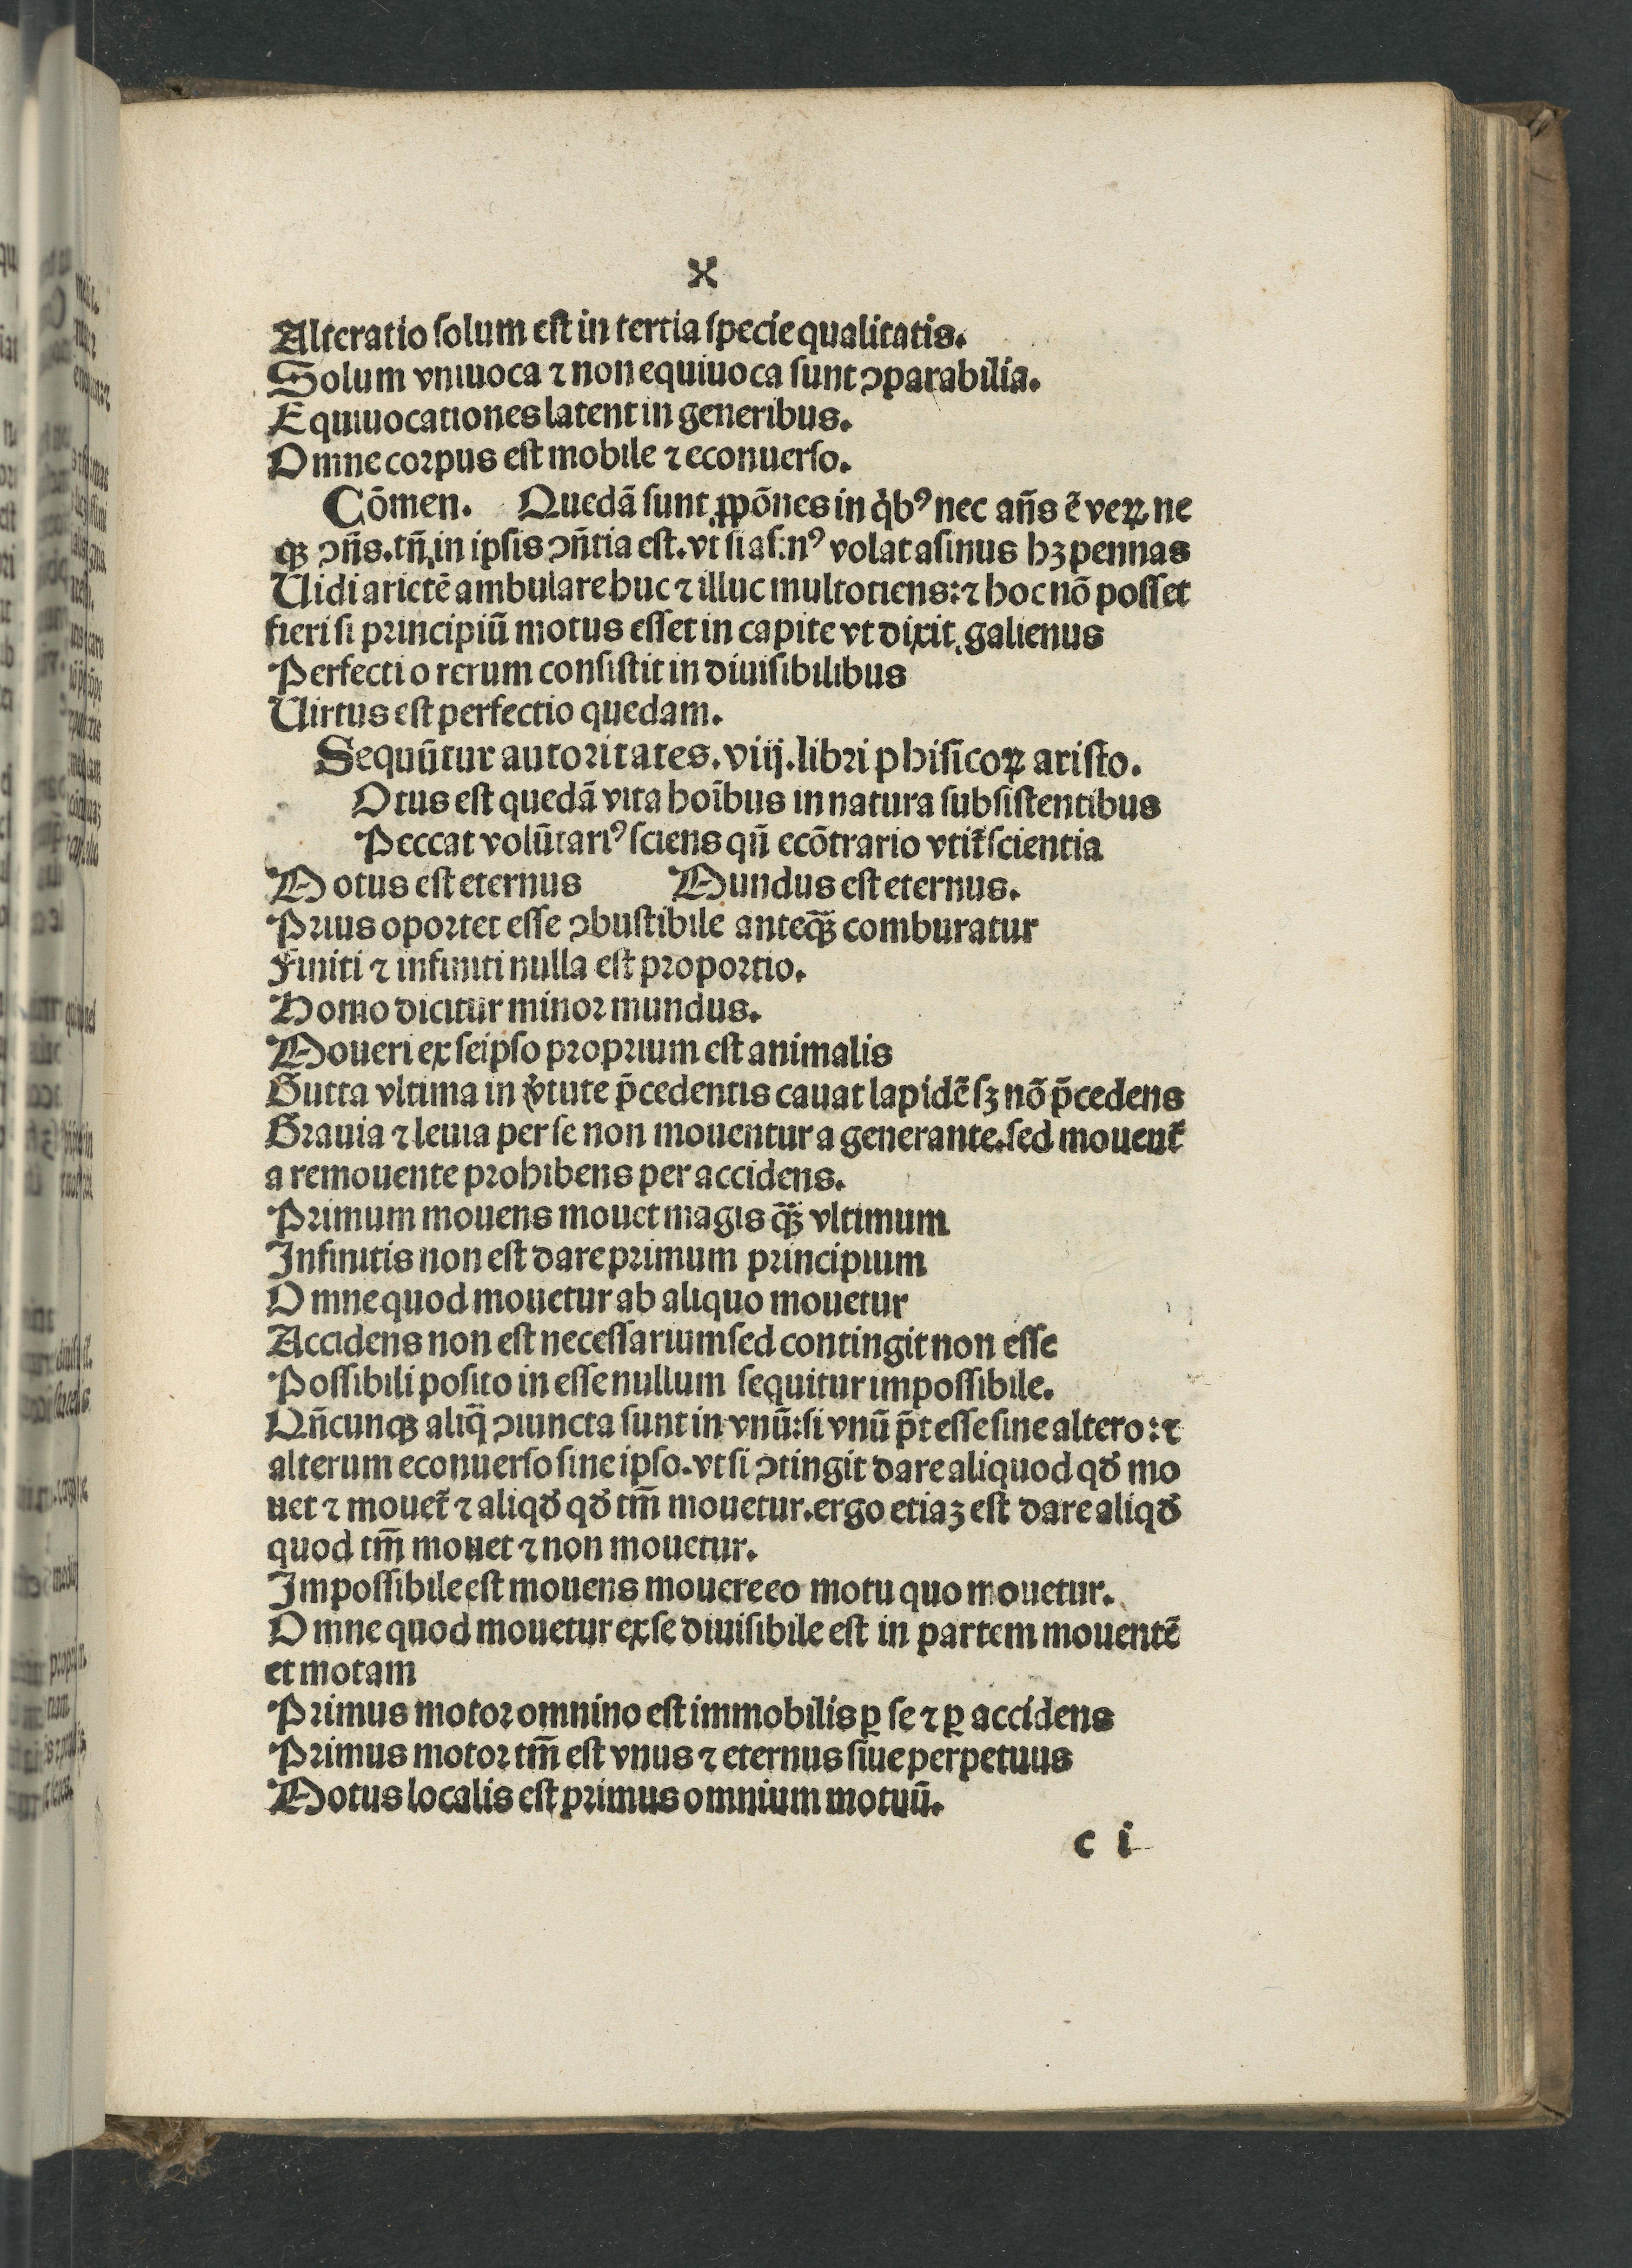 X
Alteratio ſolum eſt in tertia ſpecie qualitatis.
Solum vniuoca ⁊ non equiuoca ſunt ꝯparabilia.
Equiuocationes latent in generibus.
Omne corpus eſt mobile ⁊ econuerſo.
Cōmen. Quedā ſunt ꝓpōnes in qͥbꝰ nec an̄s ē veꝝ ne
qꝫ ꝯn̄s. tn̄ in ipſis ꝯn̄tia eſt. vt ſi aſinꝰ volat aſinus hꝫ pennas
Uidi arietē ambulare huc ⁊ illuc multotiens: ⁊ hoc nō poſſet
fieri ſi principiū motus eſſet in capite vt dixit galienus
Perfectio rerum conſiſtit in diuiſibilibus
Uirtus eſt perfectio quedam.
Sequūtur autoritates. viij. libri phiſicoꝝ ariſto.
Otus eſt quedā vita hoībus in natura ſubſiſtentibus
Peccat volūtariꝰ ſciens qn̄ ecōtrario vtit᷑ ſcientia
Motus eſt eternus Mundus eſt eternus.
Prius oportet eſſe ꝯbuſtibile anteqꝫ̄ comburatur
Finiti ⁊ infiniti nulla eſt proportio.
Homo dicitur minor mundus.
Moueri ex ſeipſo proprium eſt animalis
Gutta vltima in v̓tute p̄cedentis cauat lapidē ſꝫ nō p̄cedens
Grauia ⁊ leuia per ſe non mouentur a generante. ſed mouent᷑
a remouente prohibens per accidens.
Primum mouens mouet magis qꝫ̄ vltimum
Infinitis non eſt dare primum principium
Omne quod mouetur ab aliquo mouetur
Accidens non eſt neceſſarium ſed contingit non eſſe
Poſſibili poſito in eſſe nullum ſequitur impoſſibile.
Qn̄cunqꝫ aliq̄ ꝯiuncta ſunt in vnū: ſi vnū p̄t eſſe ſine altero: ⁊
alterum econuerſo ſine ipſo. vt ſi ꝯtingit dare aliquod qđ mo
uet ⁊ mouet᷑ ⁊ aliqđ qđ tm̄ mouetur. ergo etiaꝫ eſt dare aliqđ
quod tm̄ mouet ⁊ non mouetur.
Impoſſibile eſt mouens mouere eo motu quo mouetur.
Omne quod mouetur ex ſe diuiſibile eſt in partem mouentē
et motam
Primus motor omnino eſt immobilis ꝑ ſe ⁊ ꝑ accidens
Primus motor tm̄ eſt vnus ⁊ eternus ſiue perpetuus
Motus localis eſt primus omnium motuū.
c i